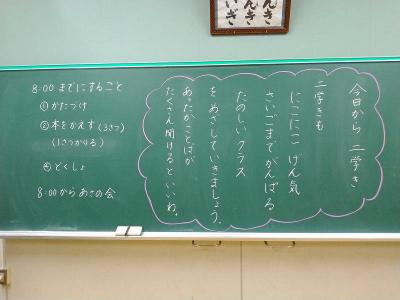 8:00までにすること
①かたづけ
②本をかえす(3さつ)
(1さつかりる)
④どくしょ
8:00からあさの会
今日から 二学き
二学きも
にこにこ げん気
さいごまでがんばる
たのしいクラス
をめざしていきましょう。
あったかことばが
たくさん聞けるといいわ。